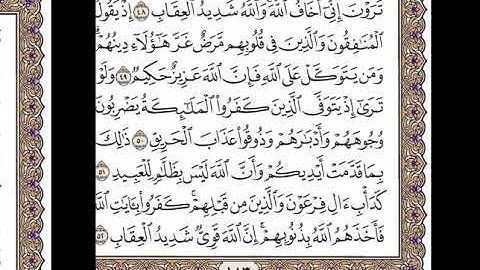 تَرَوْنَ إِنِّيٓ أَخَافُ ٱللَّهَۚ وَٱللَّهُ شَدِيدُ ٱلْعِقَابِ ٤٨ إِذْ يَقُولُ
ٱلْمُنَٰفِقُونَ وَٱلَّذِينَ فِي قُلُوبِهِم مَّرَضٌ غَرَّ هَٰٓؤُلَآءِ دِينُهُمْۗ
وَمَن يَتَوَكَّلْ عَلَى ٱللَّهِ فَإِنَّ ٱللَّهَ عَزِيزٌ حَكِيمٌ ٤٩ وَلَوْ
تَرَىٰٓ إِذْ يَتَوَفَّى ٱلَّذِينَ كَفَرُواْ ٱلْمَلَٰٓئِكَةُ يَضْرِبُونَ
وُجُوهَهُمْ وَأَدْبَٰرَهُمْ وَذُوقُواْ عَذَابَ ٱلْحَرِيقِ ٥٠ ذَٰلِكَ
بِمَا قَدَّمَتْ أَيْدِيكُمْ وَأَنَّ ٱللَّهَ لَيْسَ بِظَلَّٰمٍ لِّلْعَبِيدِ ٥١
كَدَأْبِ ءَالِ فِرْعَوْنَ وَٱلَّذِينَ مِن قَبْلِهِمْۚ كَفَرُواْ بِـَٔايَٰتِ ٱللَّهِ
فَأَخَذَهُمُ ٱللَّهُ بِذُنُوبِهِمْۚ إِنَّ ٱللَّهَ قَوِيٌّ شَدِيدُ ٱلْعِقَابِ ٥٢
١٨٣